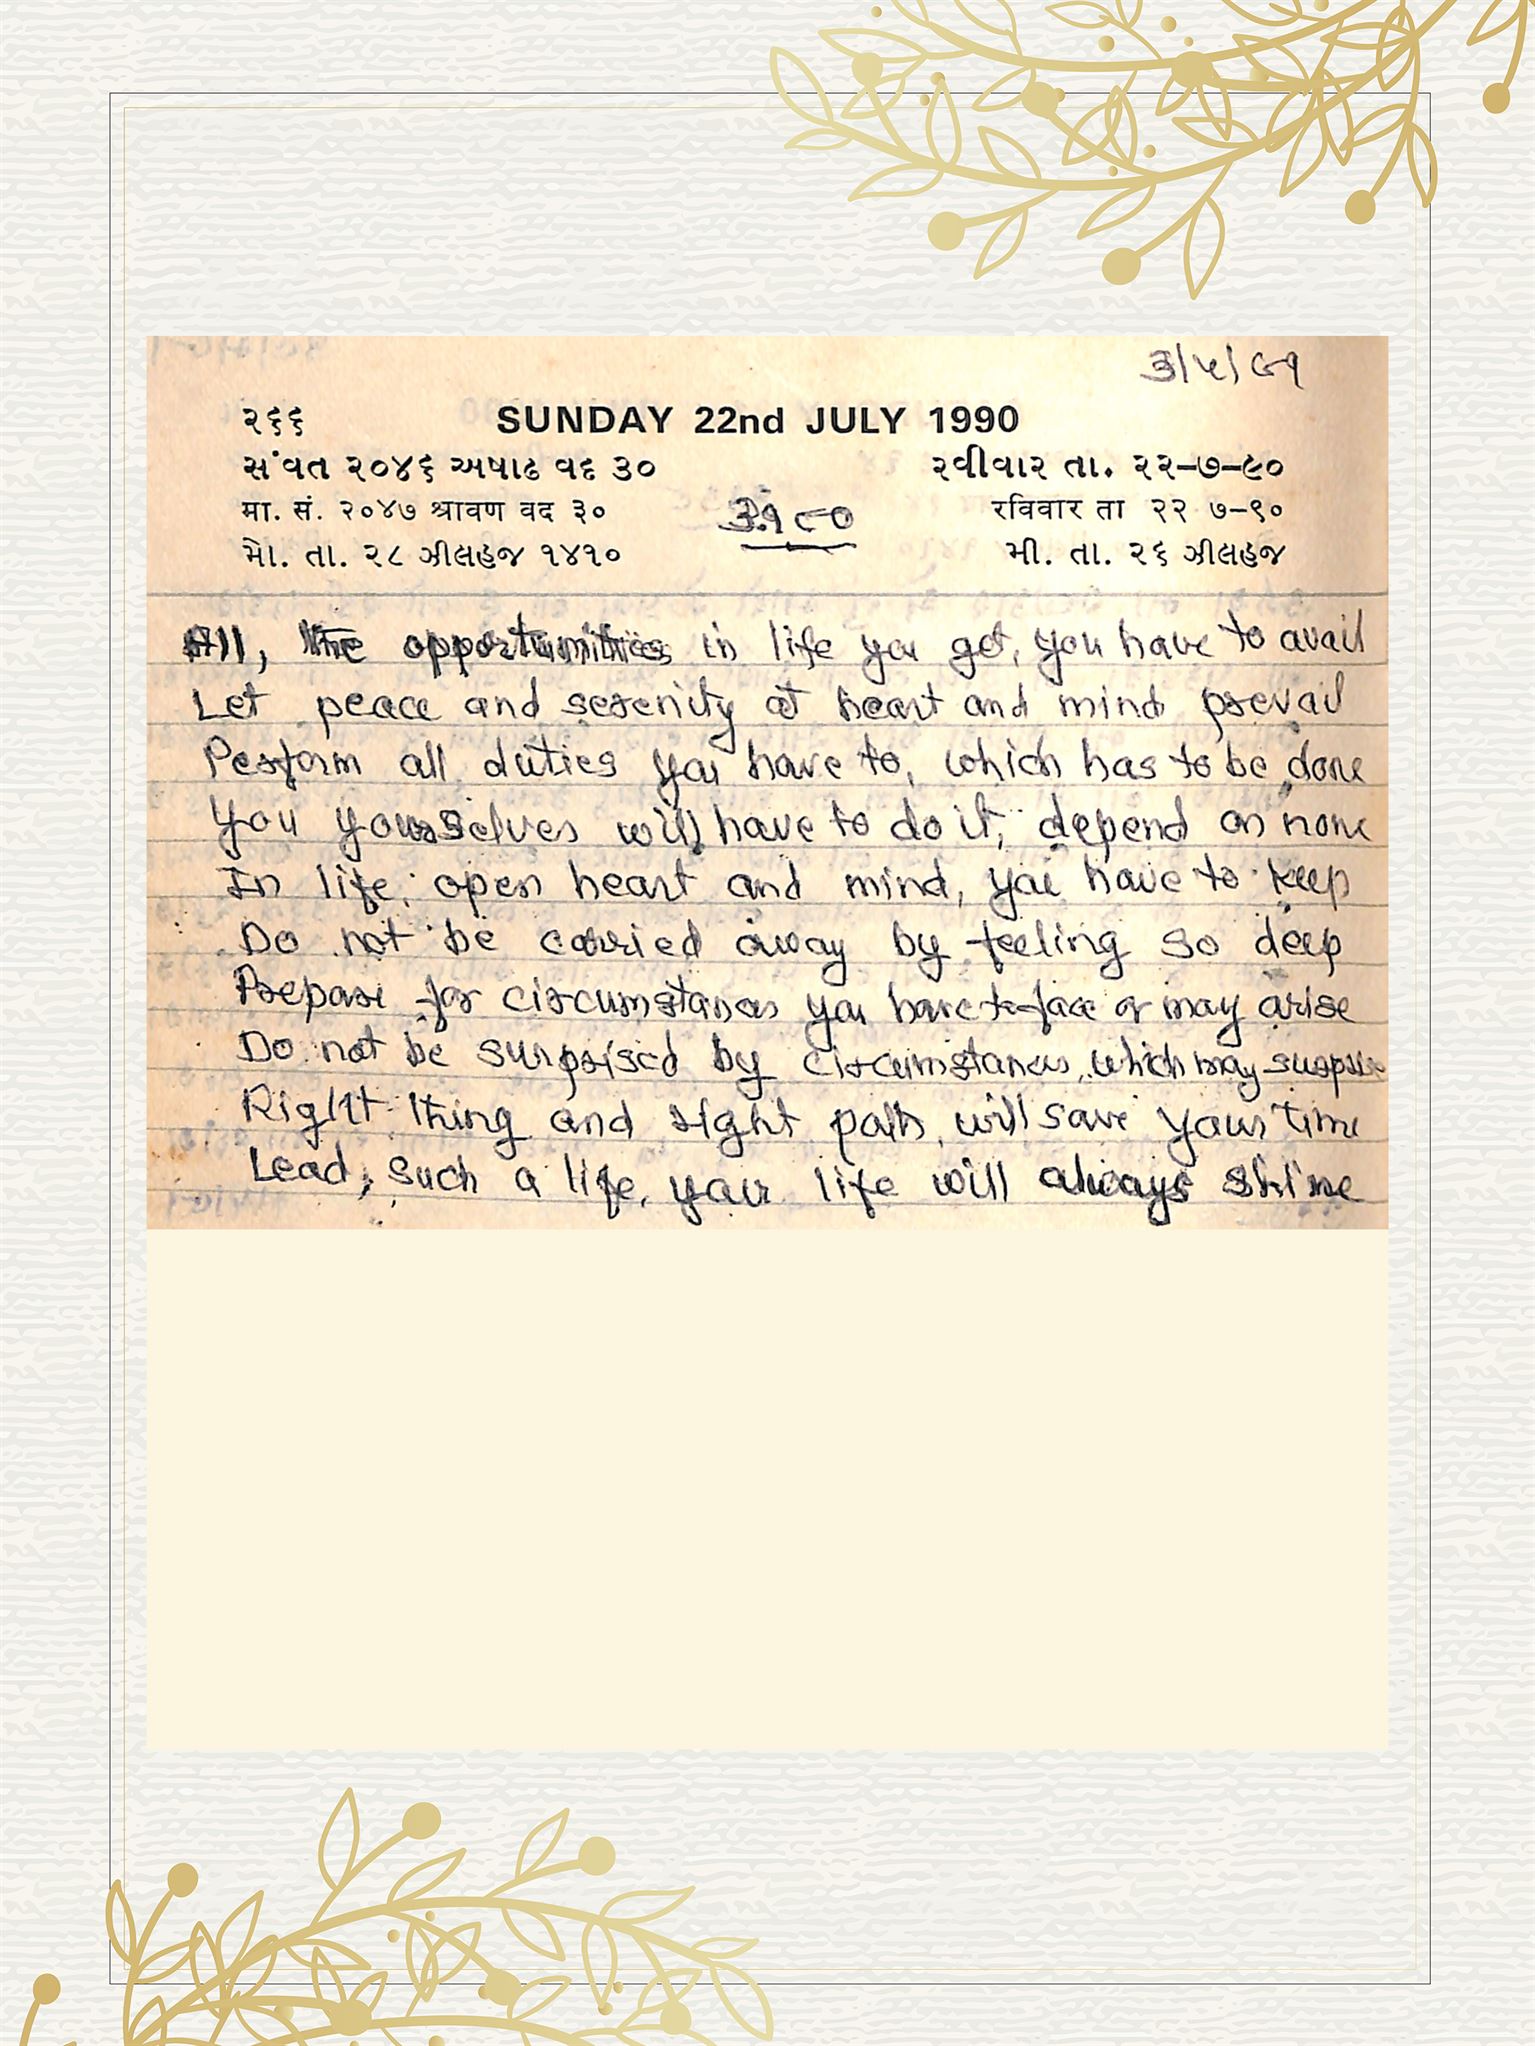 ૩/૫/૯૧
૨૬૬ SUNDAY 22nd JULY 1990
સંવત ૨૦૪૬ અષાઢ વદ ૩૦ રવીવાર તા. ૨૨-૭-૯૦
मा. सं. २०४७ श्रावण वद ३० रविवार ता २२ ७-९०
મો. તા. ૨૮ ઝીલહજ ૧૪૧૦ મી. તા. ૨૬ ઝીલહજ
૩૧૮૦
All, the opportunities in life you get, you have to avail
Let peace and serenity at heart and mind prevail
Perform all duties you have to, which has to be done
You yourselves will have to do it, depend on none
In life, open heart and mind, you have to keep
Do not be carried away by feeling so deep
Prepare for circumstances you have to face or may arise
Do not be surprised by circumstances, which may surprise
Right thing and right path, will save your time
Lead, such a life, your life will always shine